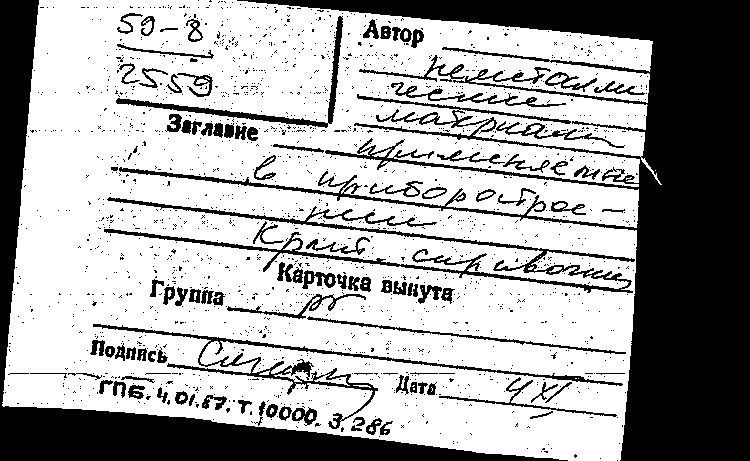 59-8
2559
Автор
неметалли
ческие
материалы
Заглавие
применяемые
в приборострое-
нии
Крат. справочник
Карточка вынута
Группа
Подпись
Дата 4 XI
ГПБ. 4.01.87. Т. 10000. З. 286